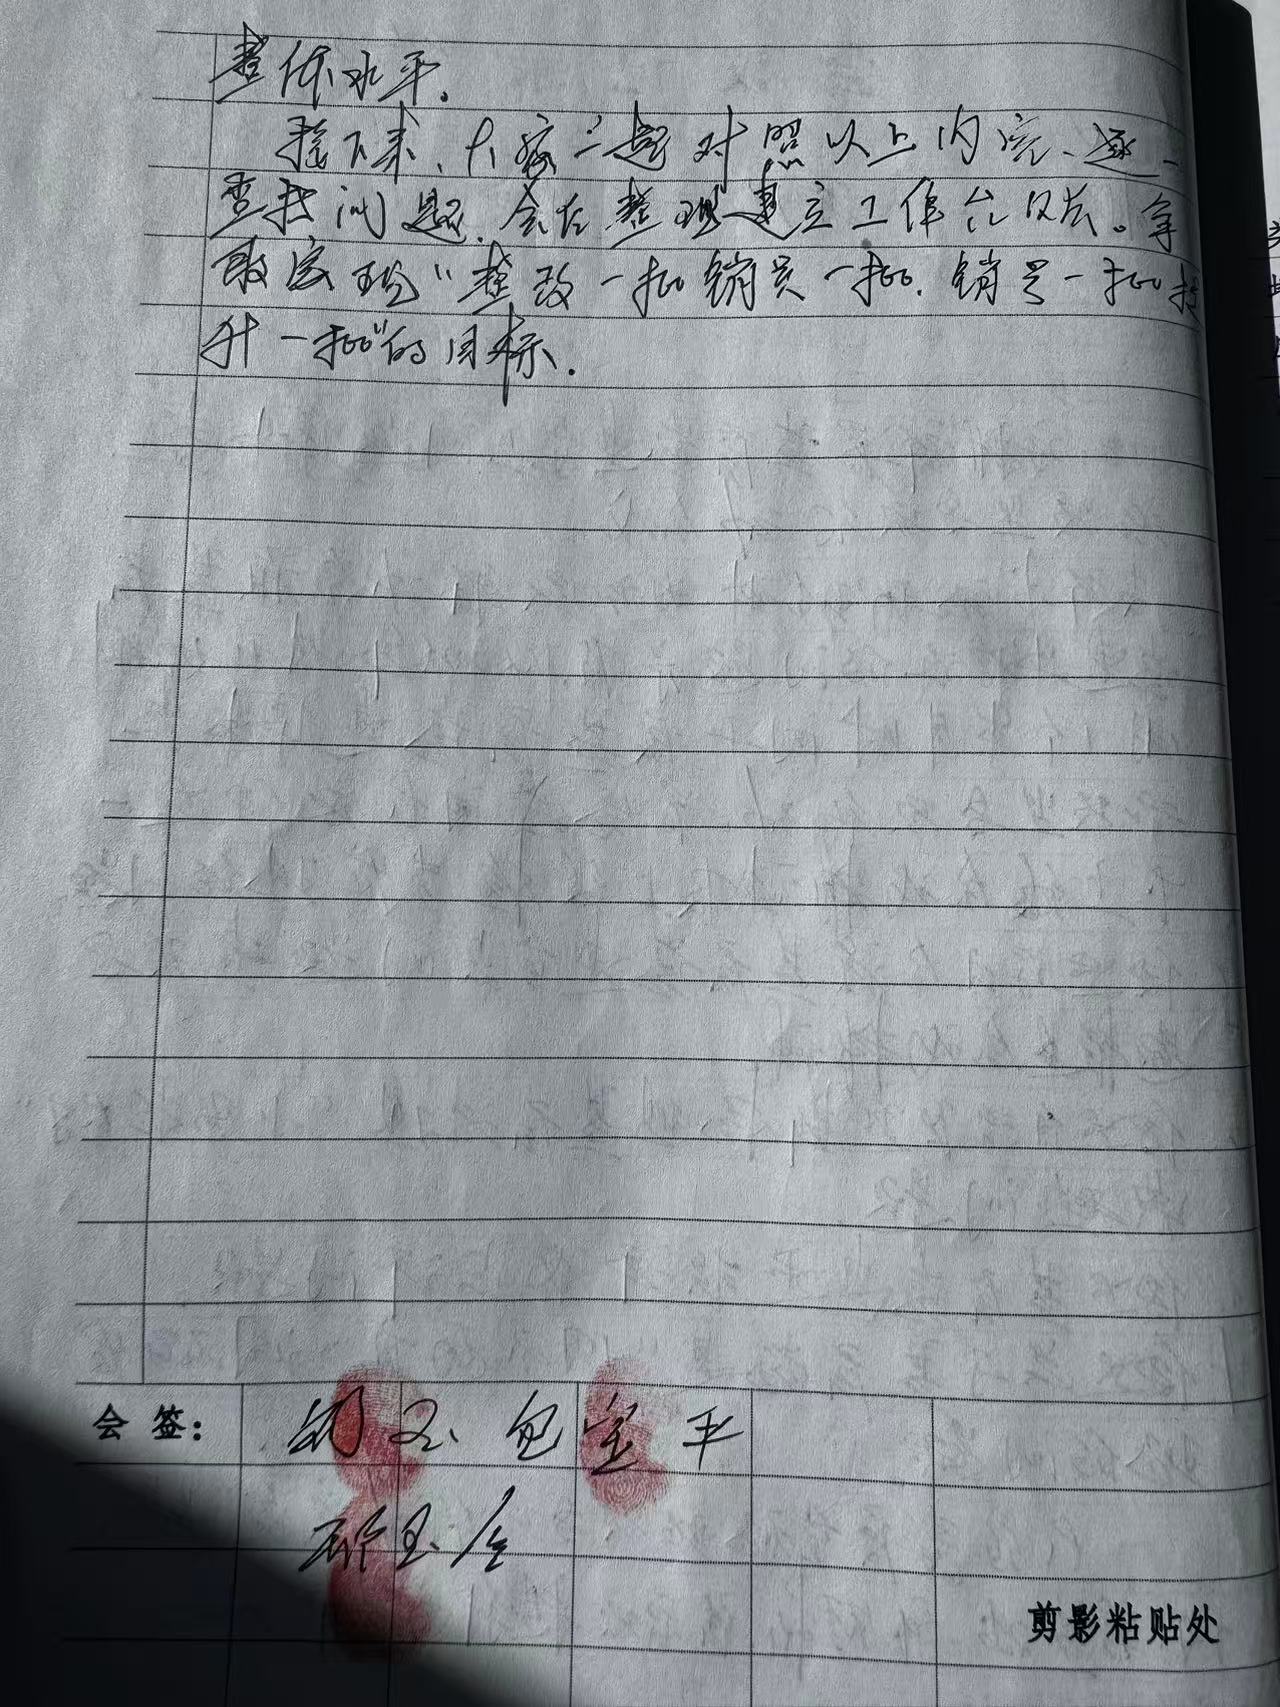 整体水平。
接下来、大家一起对照以上内容、逐一
查找问题、会后整理建立工作台账。争
取实现“整改一批销号一批、销号一批提
升一批”的目标。
会 签：
包宝平
剪影粘贴处